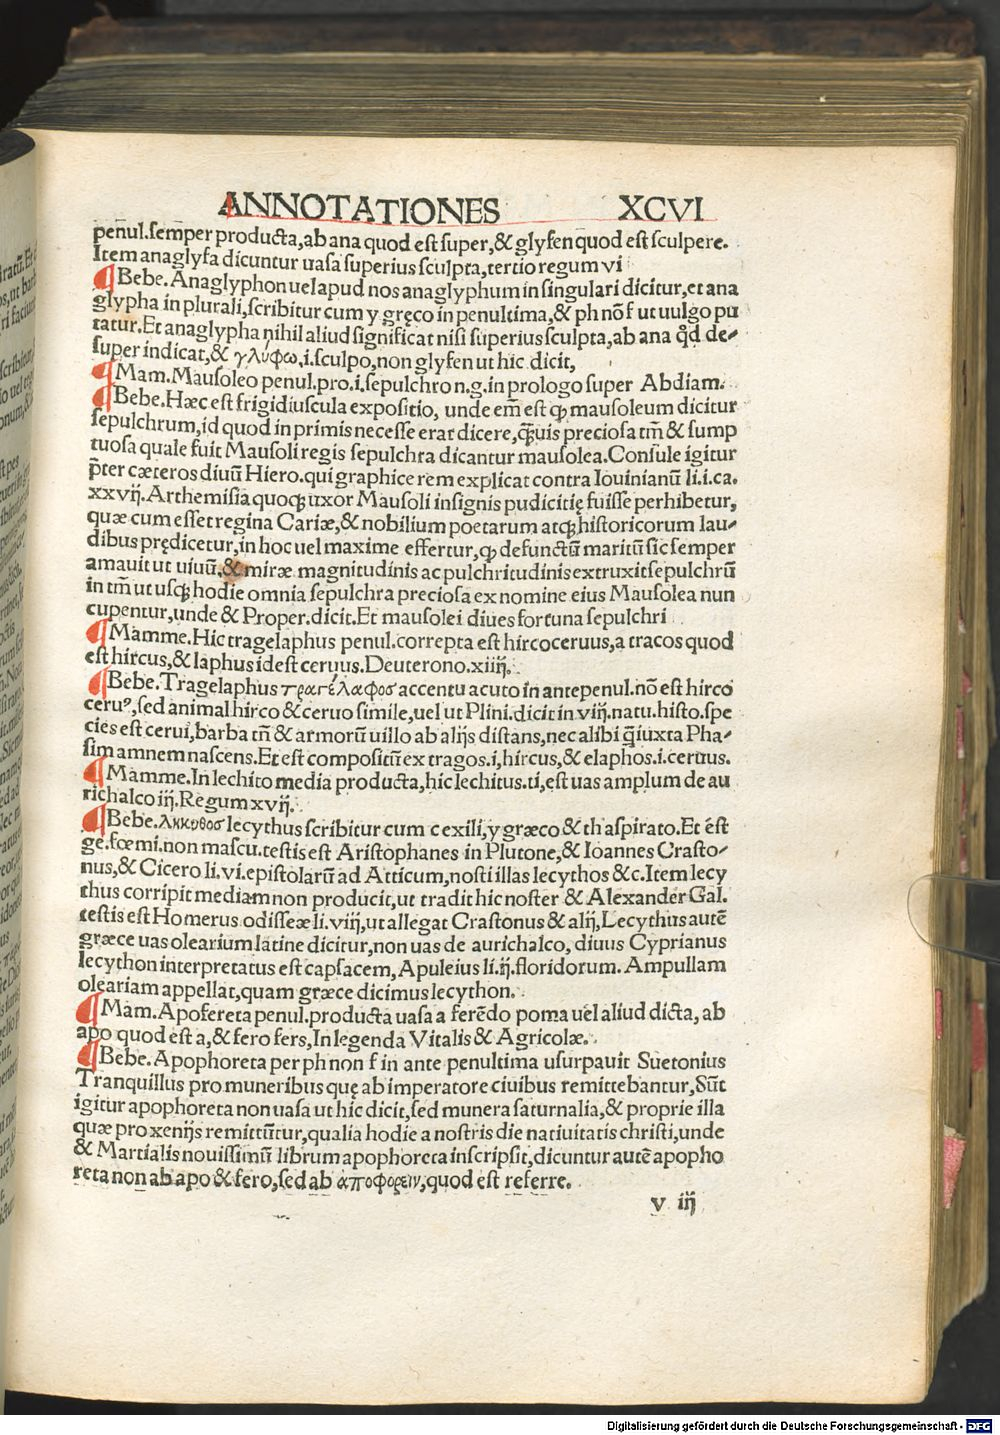 ANNOTATIONES XCVI
penul.semper producta,ab ana quod est super,& glyfen quod est sculpere.
Item anaglyfa dicuntur uasa superius sculpta,tertio regum vi
¶Bebe.Anaglyphon uel apud nos anaglyphum in singulari dicitur,et ana
glypha in plurali,scribitur cum y gręco in penultima,& ph nõ f ut uulgo pu
tatur.Et anaglypha nihil aliud significat nisi superius sculpta,ab ana q̃d de⸗
super indicat,& γλύφω,i.sculpo,non glyfen ut hic dicit,
¶Mam.Mausoleo penul.pro.i.sepulchro n.g.in prologo super Abdiam.
¶Bebe.Hæc est frigidiuscula expositio, unde em̃ est ꝙ mausoleum dicitur
sepulchrum,id quod in primis necesse erat dicere,q̃uis preciosa tm̃ & sump
tuosa quale fuit Mausoli regis sepulchra dicantur mausolea.Consule igitur
p̃ter cæteros diuũ Hiero.qui graphice rem explicat contra Iouinianũ li.i.ca.
xxvij.Arthemisia quoqꝫ uxor Mausoli insignis pudicitię fuisse perhibetur,
quæ cum esset regina Cariæ,& nobilium poetarum atqꝫ historicorum lau⸗
dibus prędicetur,in hoc uel maxime effertur,ꝙ defunctũ maritũ sic semper
amauit ut uiuũ,& miræ magnitudinis ac pulchritudinis extruxit sepulchrũ
in tm̃ ut usqꝫ hodie omnia sepulchra preciosa ex nomine eius Mausolea nun
cupentur,unde & Proper.dicit.Et mausolei diues fortuna sepulchri
¶Mamme.Hic tragelaphus penul.correpta est hircoceruus,a tracos quod
est hircus,& laphus idest ceruus.Deuterono.xiiij.
¶Bebe.Tragelaphus τραγέλαφοσ accentu acuto in antepenul.nõ est hirco
ceruꝰ,sed animal hirco & ceruo simile,uel ut Plini.dicit in viij.natu.histo.spe
cies est cerui,barba tm̃ & armorũ uillo ab alijs distans,nec alibi q̃ iuxta Pha⸗
sim amnem nascens.Et est compositũ ex tragos.i,hircus,& elaphos.i.ceruus.
¶Mamme.In lechito media producta,hic lechitus.ti,est uas amplum de au
richalco iij.Regum xvij.
¶Bebe.λκκυθοσ lecythus scribitur cum c exili,y græco & th aspirato.Et ẽst
ge.fœmi.non mascu.testis est Aristophanes in Plutone,& Ioannes Crasto⸗
nus,& Cicero li.vi.epistolarũ ad Atticum,nosti illas lecythos &c.Item lecy
thus corripit mediam non producit,ut tradit hic noster & Alexander Gal.
testis est Homerus odisseæ li.viij,ut allegat Crastonus & alij,Lecythus autẽ
græce uas olearium latine dicitur,non uas de aurichalco, diuus Cyprianus
lecython interpretatus est capsacem,Apuleius li.ij.floridorum. Ampullam
oleariam appellat,quam græce dicimus lecython.
¶Mam.Apofereta penul.producta uasa a ferẽdo poma uel aliud dicta, ab
apo quod est a,& fero fers,In legenda Vitalis & Agricolæ.
¶Bebe.Apophoreta per ph non f in ante penultima usurpauit Suetonius
Tranquillus pro muneribus quę ab imperatore ciuibus remittebantur,Sũt
igitur apophoreta non uasa ut hic dicit,sed munera saturnalia,& proprie illa
quæ pro xenijs remittũtur,qualia hodie a nostris die natiuitatis christi,unde
& Martialis nouissimũ librum apophoreta inscripsit,dicuntur autẽ apopho
reta non ab apo & fero,sed ab αποφορειν,quod est referre.
v iij
Digitalisierung gefördert durch die Deutsche Forschungsgemeinschaft - DFG